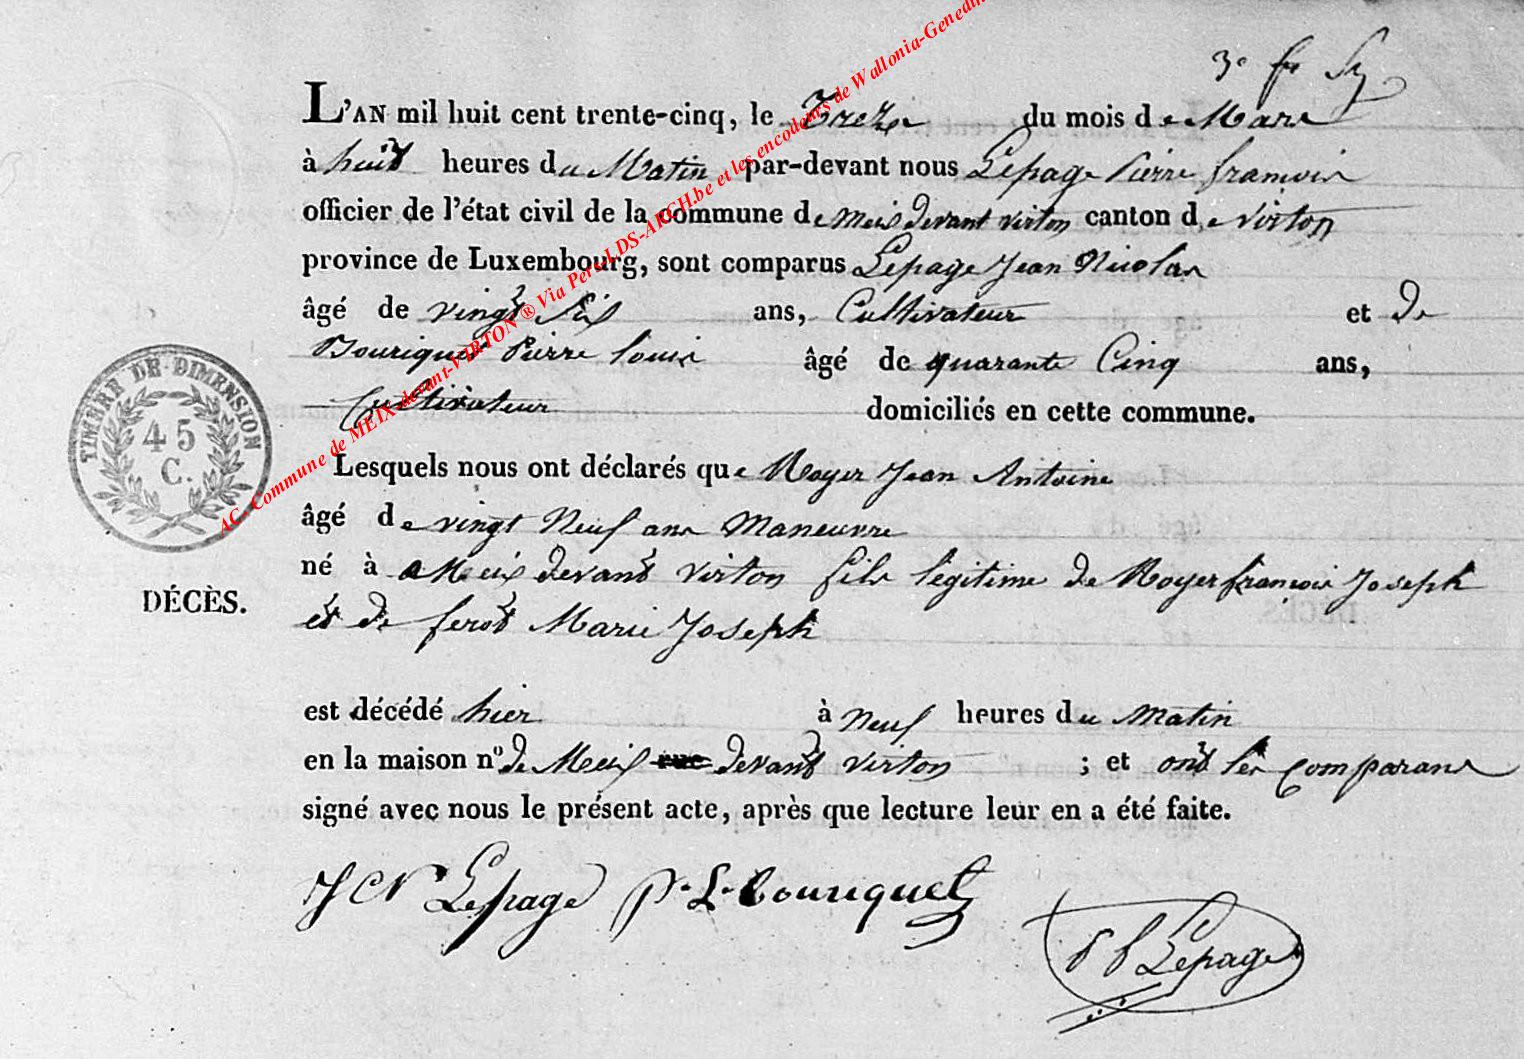 3e fr
L'AN mil huit cent trente-cinq, le Treze du mois de Mars
à huit heures du Matin par-devant nous Lepage Pierre françois
officier de l'état civil de la commune de Meix devant virton canton de virton
province de Luxembourg, sont comparus Lepage Jean Nicolas
âgé de vingt Six ans, Cultivateur et de
Bouriquet Pierre louis âgé de quarante Cinq ans,
Cultivateur domiciliés en cette commune.
Lesquels nous ont déclarés que Royer Jean Antoine
âgé de vingt Neuf ans Maneuvre
né à Meix devant virton fils légitime de Royer françois Joseph
et de ferot Marie Joseph
est décédé hier à Neuf heures du Matin
en la maison no de Meix rue devant virton ; et ont les comparans
signé avec nous le présent acte, après que lecture leur en a été faite.
JCN Lepage P. L. Bouriquet
Pf Lepage
TIMBRE DE DIMENSION
45
C.
DÉCÈS.
AC. Commune de MEIX-devant-VIRTON ® Via Pers-LDS-ARCH.be et les encodeurs de Wallonia-Genedin